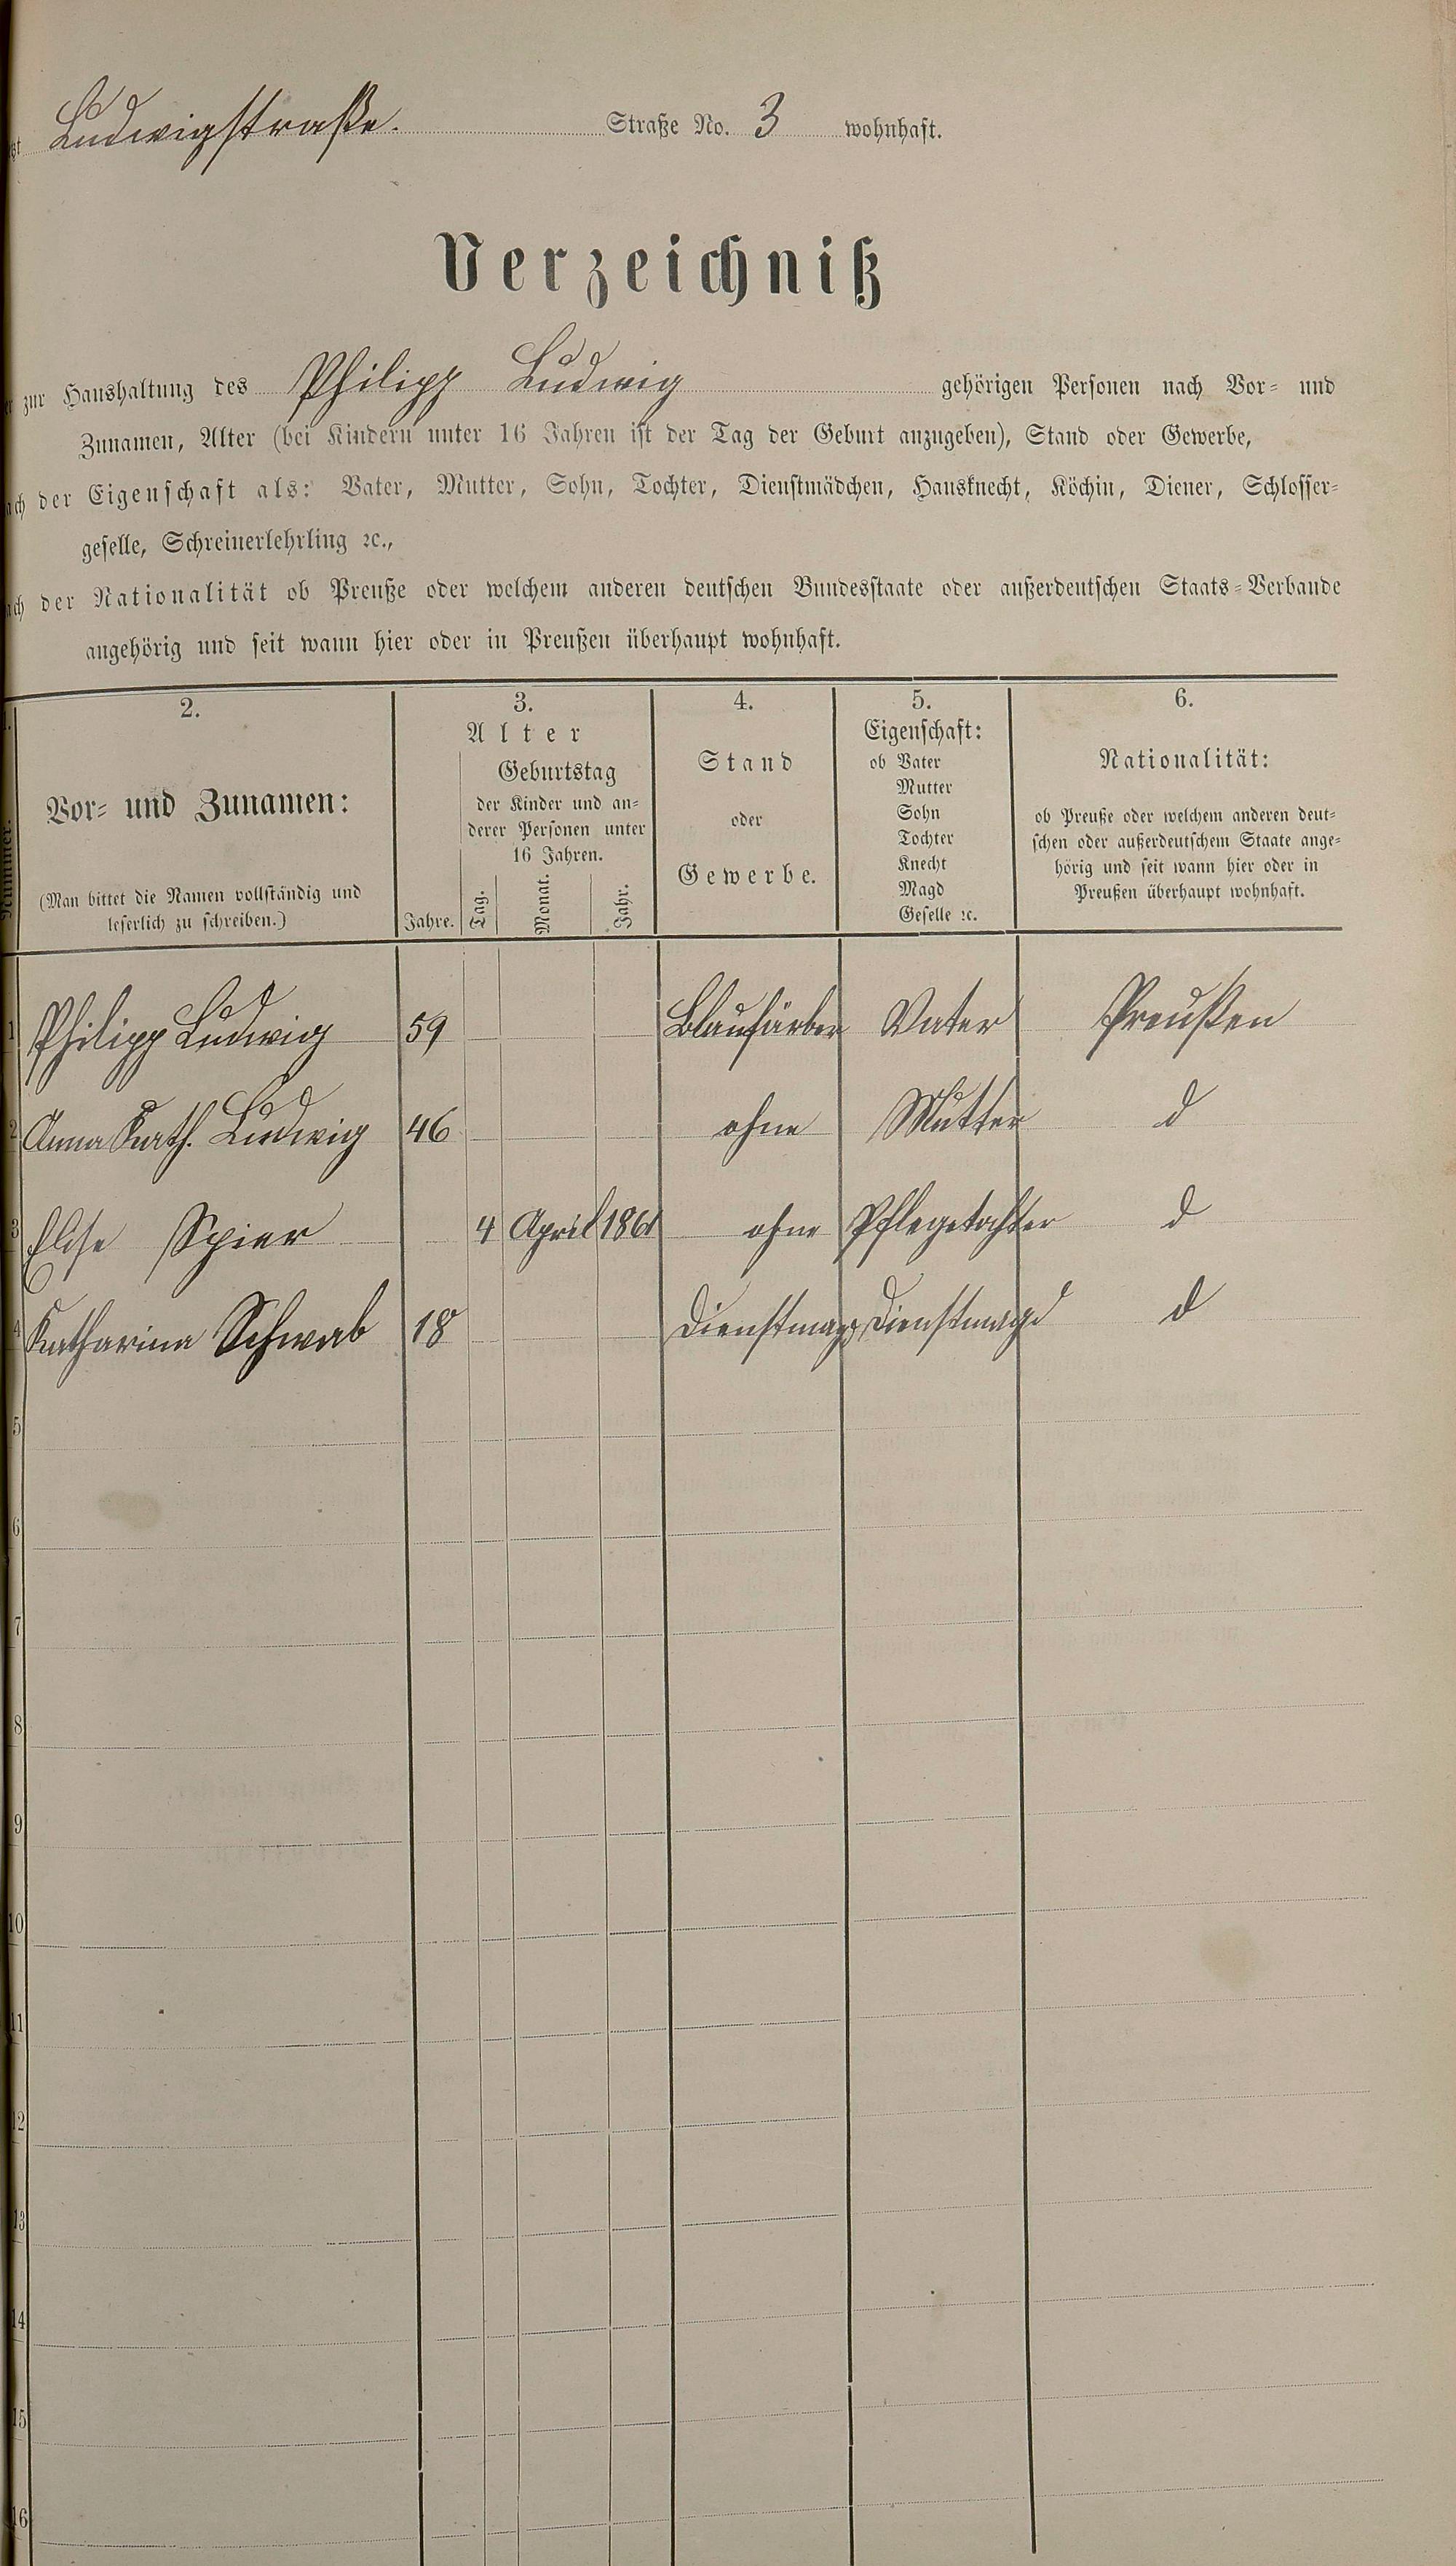 Ludwigstraße. Straße No. 3 wohnhaft.
Verzeichniß
zur Haushaltung des Philipp Ludwig gehörigen Personen nach Vor- und
Zunamen, Alter (bei Kindern unter 16 Jahren ist der Tag der Geburt anzugeben), Stand oder Gewerbe,
der Eigenschaft als: Vater, Mutter, Sohn, Tochter, Dienstmädchen, Hausknecht, Köchin, Diener, Schlosser-
geselle, Schreinerlehrling ꝛc.,
der Nationalität ob Preuße oder welchem anderen deutschen Bundesstaate oder außerdeutschen Staats-Verbande
angehörig und seit wann hier oder in Preußen überhaupt wohnhaft.
Nummer.
2.
Vor- und Zunamen:
(Man bittet die Namen vollständig und
leserlich zu schreiben.)
3.
Alter
Jahre.
Geburtstag
der Kinder und an-
derer Personen unter
16 Jahren.
Tag. Monat. Jahr.
4.
Stand
oder
Gewerbe.
5.
Eigenschaft:
ob Vater
Mutter
Sohn
Tochter
Knecht
Magd
Geselle ꝛc.
6.
Nationalität:
ob Preuße oder welchem anderen deut-
schen oder außerdeutschem Staate ange-
hörig und seit wann hier oder in
Preußen überhaupt wohnhaft.
1 Philipp Ludwig 59 Blaufärber Vater Preußen
2 Anna Kath. Ludwig 46 ohne Mutter d
3 Elise Spier 4 April 1861 ohne Pflegetochter d
4 Katharina Schwab 18 Dienstmagd Dienstmagd d
5
6
7
8
9
10
11
12
13
14
15
16